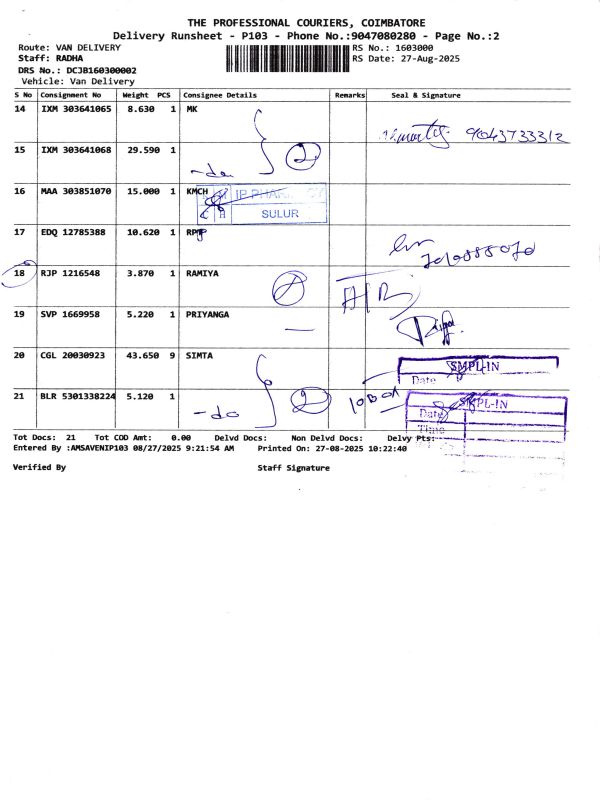 THE PROFESSIONAL COURIERS, COIMBATORE
Delivery Runsheet - P103 - Phone No.:9047080280 - Page No.:2
Route: VAN DELIVERY
RS No.: 1603000
Staff: RADHA
RS Date: 27-Aug-2025
DRS No.: DCJB160300002
Vehicle: Van Delivery
S No Consignment No Weight PCS Consignee Details Remarks Seal & Signature
14 IXM 303641065 8.630 1 MK
9043733312
15 IXM 303641068 29.590 1
-do 2
16 MAA 303851070 15.000 1 KMCH
IP PHARMACY
SULUR
17 EDQ 12785388 10.620 1 RPP
18 RJP 1216548 3.870 1 RAMIYA
19 SVP 1669958 5.220 1 PRIYANGA
20 CGL 20030923 43.650 9 SIMTA
SMPL-IN
Date
21 BLR 5301338224 5.120 1
-do 2
SMPL-IN
Date
Time
Tot Docs: 21 Tot COD Amt: 0.00 Delvd Docs: Non Delvd Docs: Delvy Pts:
Entered By :AMSAVENIP103 08/27/2025 9:21:54 AM Printed On: 27-08-2025 10:22:40
Verified By Staff Signature